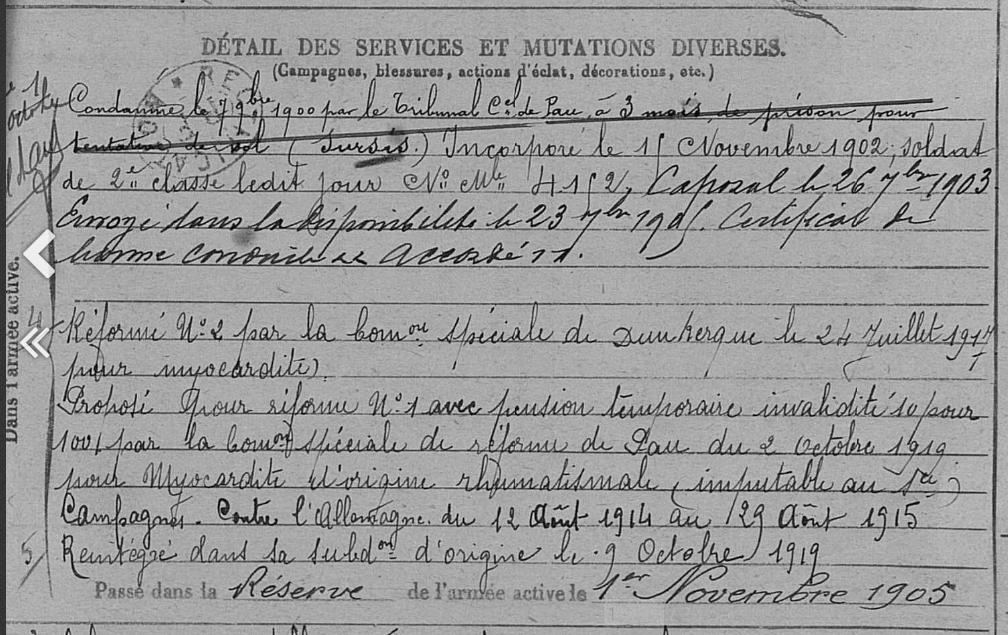 DÉTAIL DES SERVICES ET MUTATIONS DIVERSES.
(Campagnes, blessures, actions d'éclat, décorations, etc.)
Condamné le 7 9bre 1900 par le Tribunal Cel de Pau, à 3 mois de prison pour
tentative de vol (Sursis.) Incorporé le 15 Novembre 1902, soldat
de 2e classe ledit jour No Mle 4152, Caporal le 26 7bre 1903
Envoyé dans la disponibilité le 23 7bre 1905. Certificat de
bonne conduite Accordé
Réformé No 2 par la Comon spéciale de Dunkerque le 24 Juillet 1917
pour myocardite)
Proposé pour réforme No 1 avec pension temporaire invalidité 10 pour
100 par la Comon spéciale de réforme de Pau du 2 Octobre 1919
pour Myocardite d'origine rhumatismale (imputable au Sce)
Campagnes. Contre l'Allemagne. du 12 Août 1914 au 29 Août 1915
Réintégré dans sa subdon d'origine le 9 Octobre 1919
Passé dans la Réserve de l'armée active le 1er Novembre 1905
Dans l'armée active.